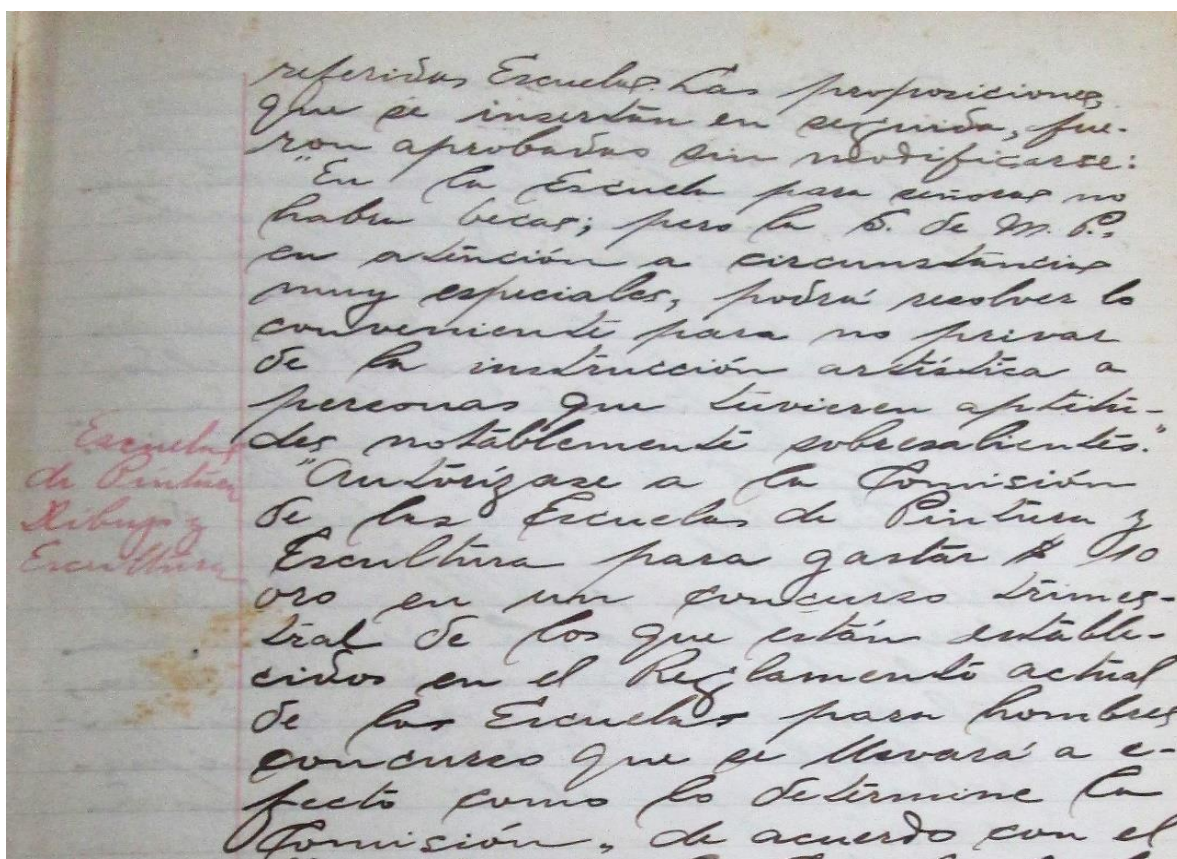 referidas Escuelas. Las proposiciones,
que se insertan en seguida, fue-
ron aprobadas sin modificarse:
"En la Escuela para señoras no
habra becas; pero la S. de M. P.,
en atención a circunstancias
muy especiales, podrá resolver lo
conveniente para no privar
de la instrucción artística a
personas que tuvieren aptitu-
des notablemente sobresalientes."
Escuelas
de Pintura
Dibujo y
Escultura
"Autorízase a la Comisión
de las Escuelas de Pintura y
Escultura para gastar $ 10
oro en un concurso trimes-
tral de los que están estable-
cidos en el Reglamento actual
de las Escuelas para hombres
concurso que se llevará a e-
fecto como lo determine la
Comisión, de acuerdo con el